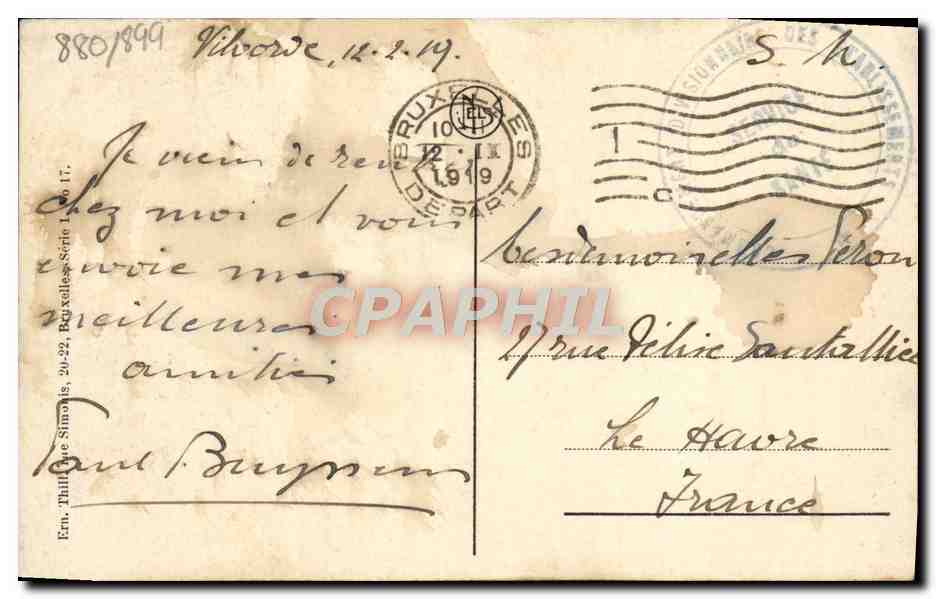 880/899
Vilvorde, 12.2.19.
S. M.
BRUXELLES
10
12 · II
1919
DEPART
NELS
1
C
SERVICE
DE
SANTE
DIVISIONNAIRE DES
Je viens de
chez moi et vous
envoie mes
meilleures
amitiés
Paul Buyssens
Mesdemoiselles Péron
27 rue Félix Santallier
Le Havre
France
CPAPHIL
Ern. Thill, rue Simonis, 20-22, Bruxelles. Série 1, No 17.